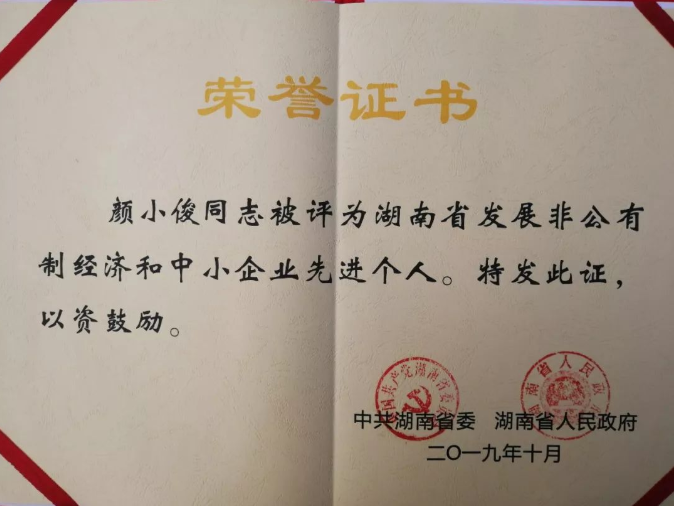 荣誉证书
颜小俊同志被评为湖南省发展非公有
制经济和中小企业先进个人。特发此证，
以资鼓励。
中国共产党湖南省委员会
湖南省人民政府
中共湖南省委 湖南省人民政府
二〇一九年十月